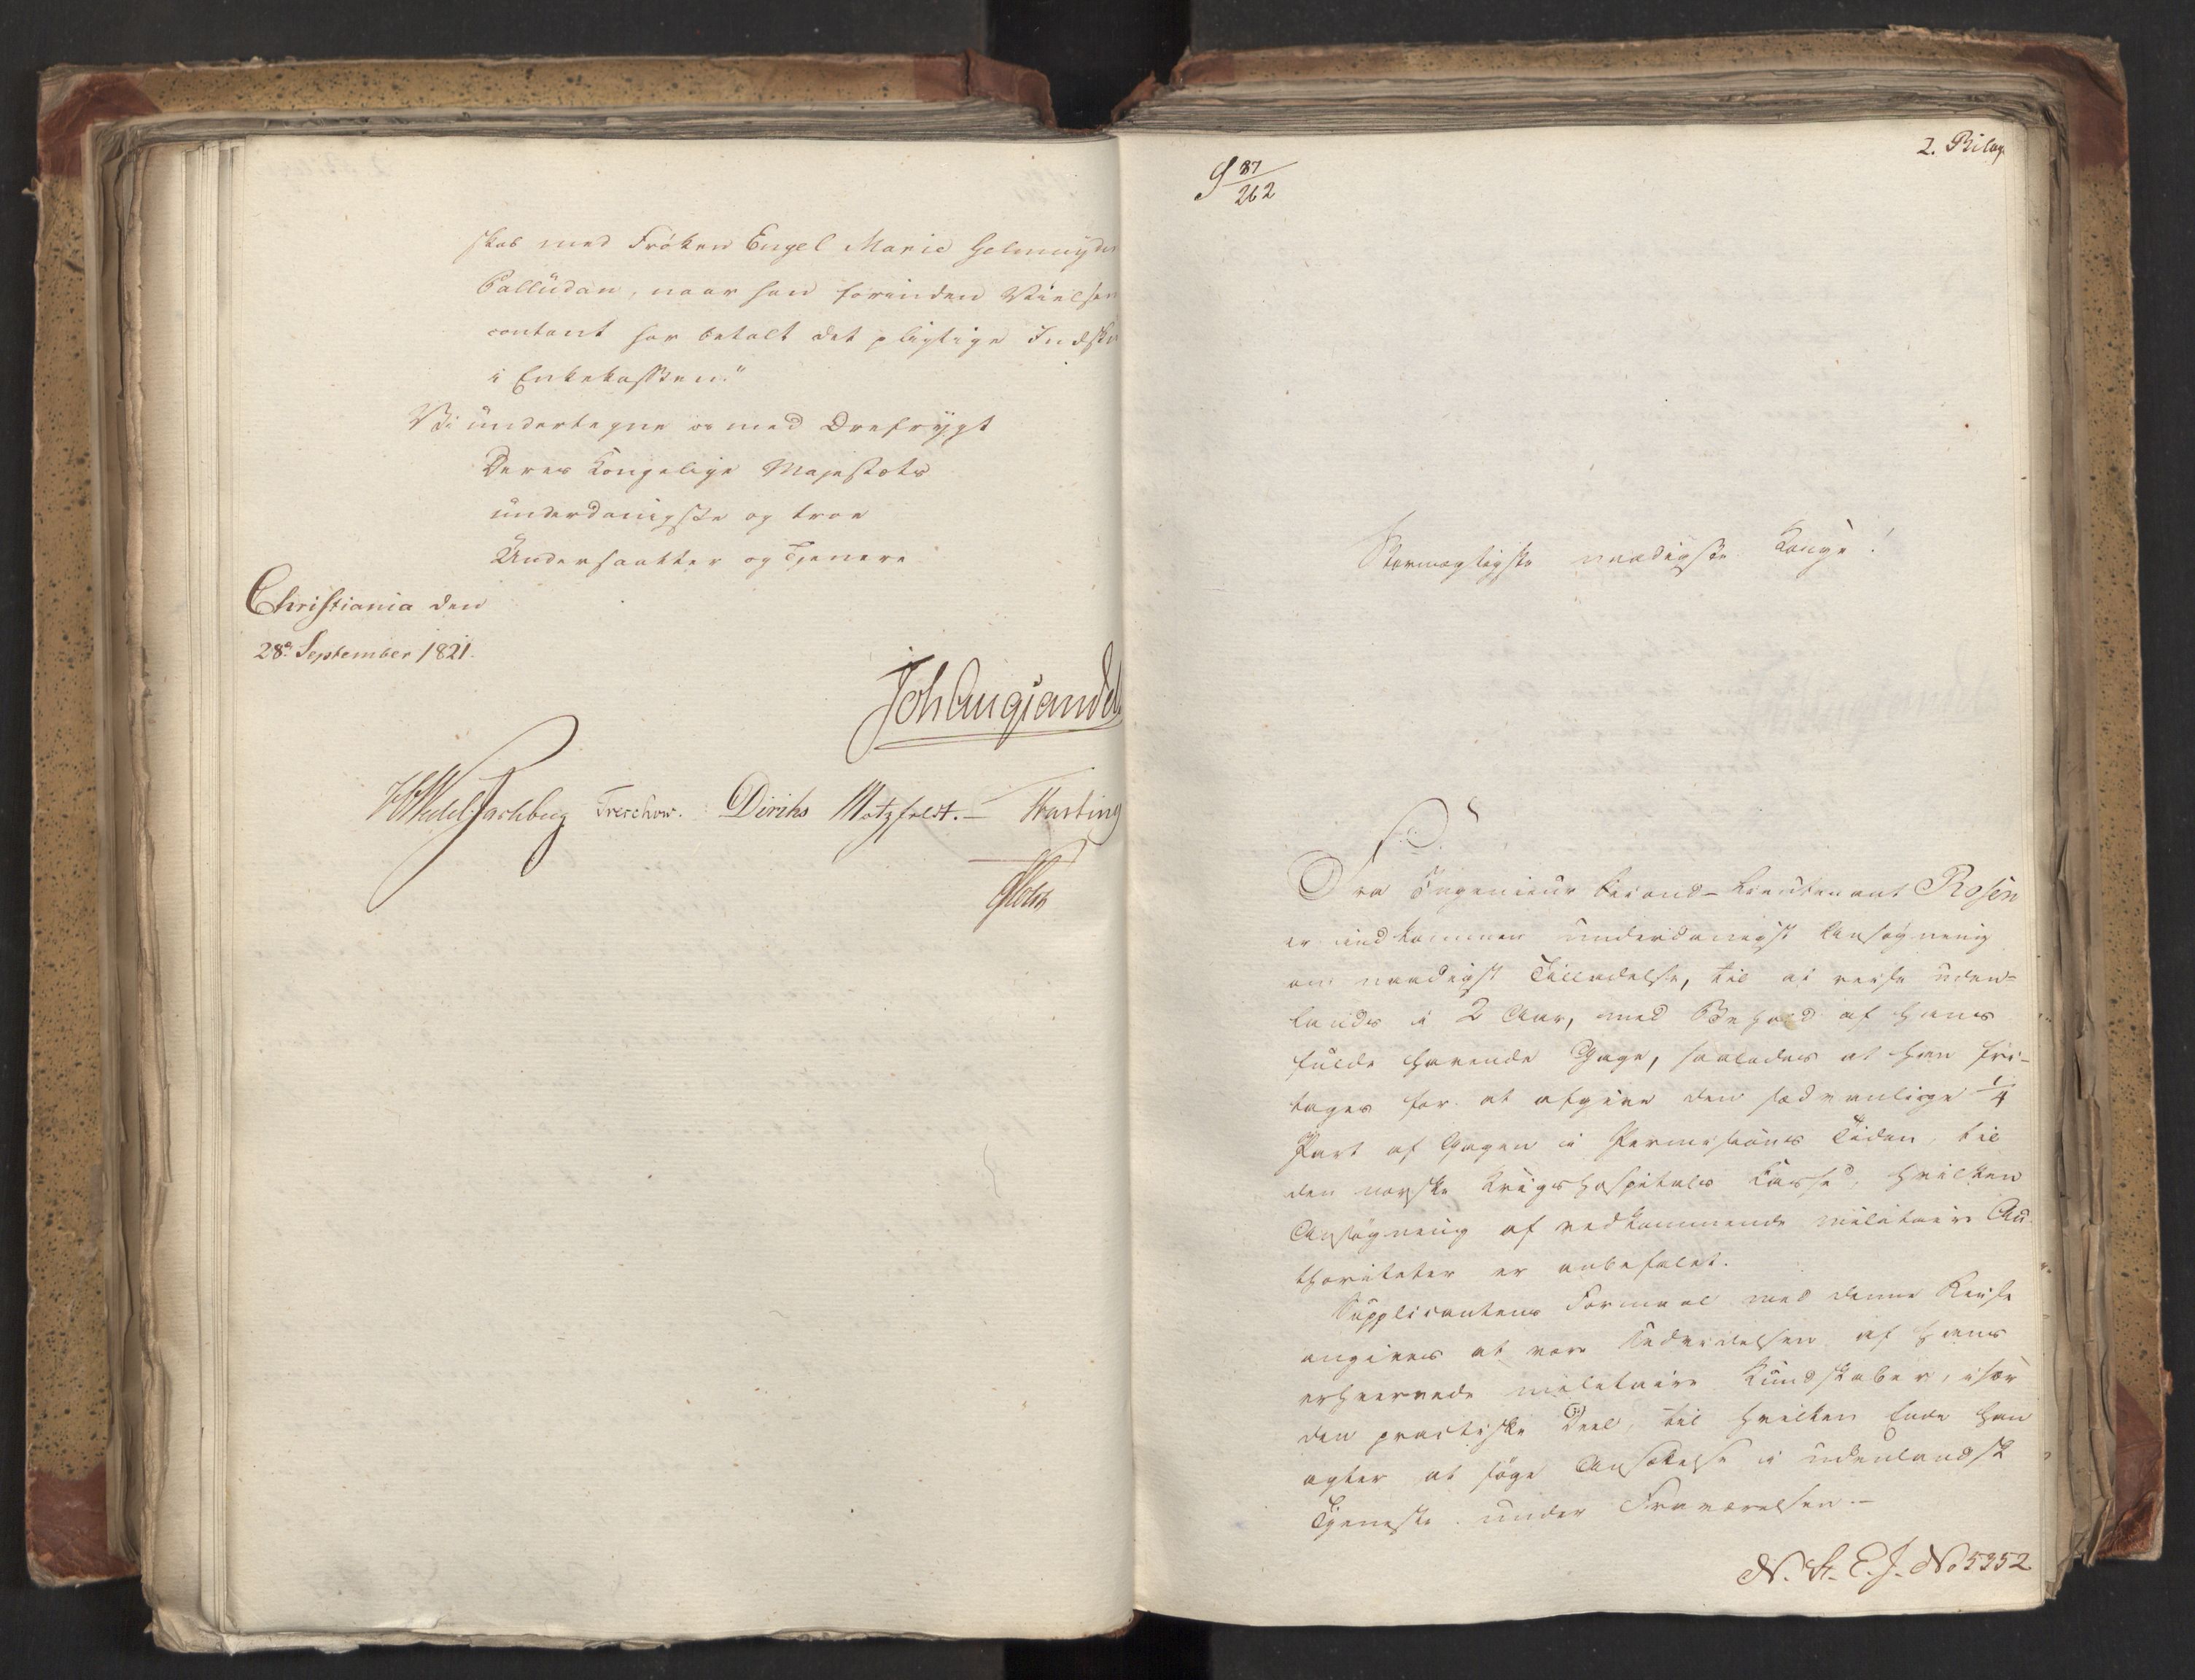 skab med Frøken Engel Marie Gelmuyden
Balludan, naar han forinden Vielsen
contant har betalt det pligtige Indsku
i Enkekassen."
Vi undertegne os med Ærefrygt
Deres Kongelige Majestæts
underdanigste og troe
Undersaatter og Tjenere
Christiania den
28de September 1821.
Joh Aug Sandel
HWedel Jarlsberg Treschow. Diriks Motzfeldt. – Fasting
Holst
2. Bilag
S 87/262
Stormægtigste naadigste Konge!
Fra Ingenieur Second-Lieutenant Rosen
er indkommen underdanigst Ansøgning
om naadigst Tilladelse, til at reise uden-
lands i 2 Aar, med Behold af hans
fulde havende Gage, saaledes at han fri-
tages for at afgive den sædvanlige 1/4
Part af Gagen i Permissions Tiden, til
den norske Krigshospitals Kasse, hvilken
Ansøgning af vedkommende militaire Au-
thoriteter er anbefalet.
Supplicantens Formaal med denne Reise
angives at være Udvidelsen af hans
erhvervede militaire Kundskaber, især
den practiske Deel, til hvilken Ende han
agter at søge Ansættelse i udenlandsk
Tjeneste under Fraværelsen. –
N. St. E. J. No 5352.